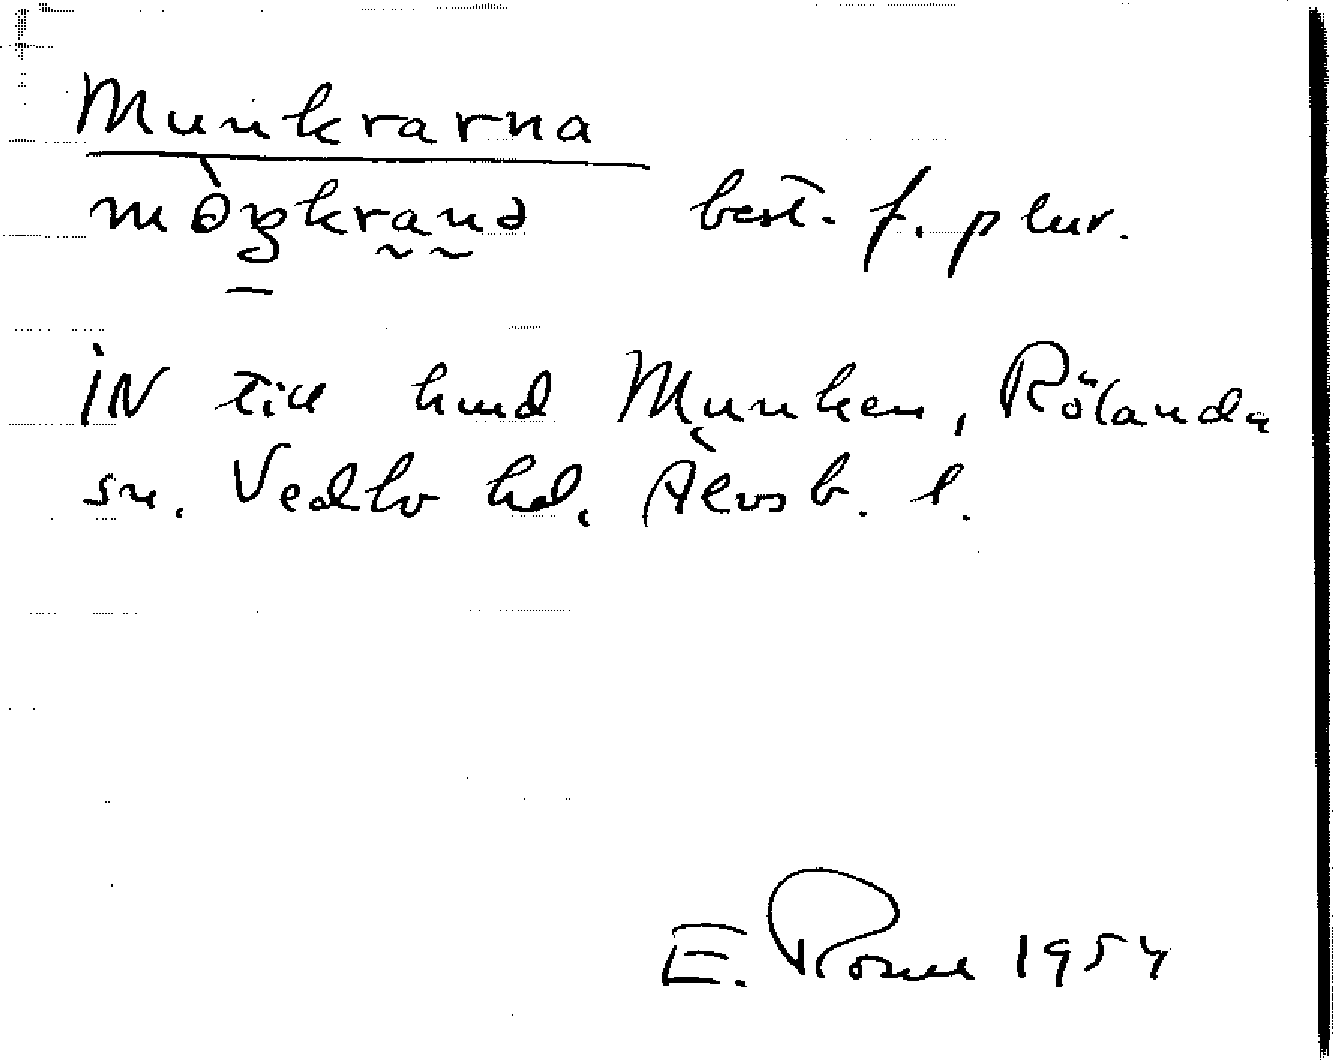 Munkrarna
mòŋkrana best. f. plur.
IN till hmd Munken, Rölanda
sn. Vedbo hd. Älvsb. l.
E. Rosell 1954